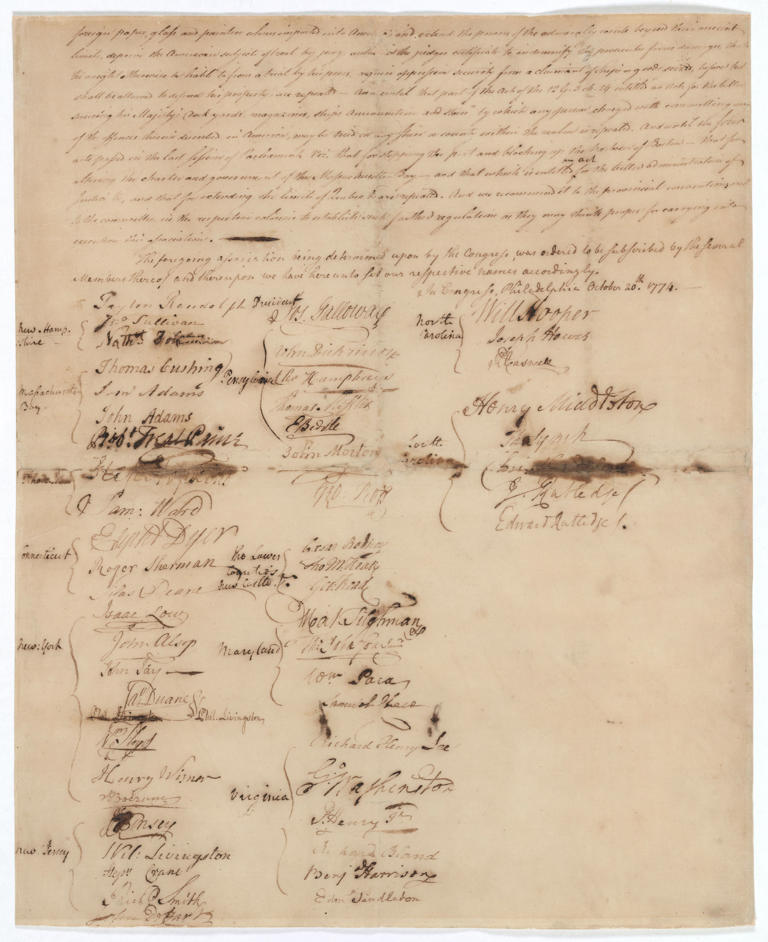 foreign paper, glass and painters colours imported into America, and extend the powers of the admiralty courts beyond their ancient
limits, deprive the American subject of trial by jury, authorize the judges certificate to indemnify the prosecutor from damages, that
he might otherwise be liable to from a trial by his peers, require oppressive security from a claimant of ships or goods seized, before he
shall be allowed to defend his property, are repealed— And until that part of the Act of the 12 G. 3. ch. 24 entitled an Act for the better
securing his Majesty's Dock yards, magazines, ships Ammunition and stores by which any person charged with committing any
of the offences therein described in America, may be tried in any shire or county within the realm is repealed. And until the four
acts passed in the last session of Parliament Viz. that for stopping the port and blocking up the Harbour of Boston— That for
altering the charter and government of the Massachusetts Bay— and that which is entitled an act for the better administration of
Justice &c, and that for extending the limits of Quebec &c are repealed. And we recommend it to the provincial conventions, and
to the committees in the respective colonies to establish such farther regulations as they may think proper for carrying into
execution this association.
The foregoing association being determined upon by the Congress, was ordered to be subscribed by the several
Members thereof and thereupon we have hereunto set our respective names accordingly.
In Congress, Philadelphia October 20th 1774.
Peyton Randolph President
New Hampshire
Jno Sullivan
Nathl Folsom
Massachusetts Bay
Thomas Cushing
Saml Adams
John Adams
Robt Treat Paine
Rhode Island
Step Hopkins
Sam: Ward
Connecticut
Elipht Dyer
Roger Sherman
Silas Deane
New-York
Isaac Low
John Alsop
John Jay
Jas Duane
Phil. Livingston
Wm Floyd
Henry Wisner
S: Boerum
New Jersey
J. Kinsey
Wil: Livingston
Stepn Crane
Richd Smith
John De Hart
Pensylvania
Jos. Galloway
John Dickinson
Cha Humphreys
Thomas Mifflin
E Biddle
John Morton
Geo: Ross
the Lower Counties New Castle &c.
Caesar Rodney
Tho M:Kean
Geo Read
Maryland
Mat Tilghman
Ths Johnson Junr
Wm Paca
Samuel Chase
Virginia
Richard Henry Lee
Go Washington
P. Henry Jr
Richard Bland
Benj Harrison
Edmd Pendleton
North Carolina
Will Hooper
Joseph Hewes
Rd Caswell
South Carolina
Henry Middleton
Tho Lynch
Christ Gadsden
J. Rutledge
Edward Rutledge